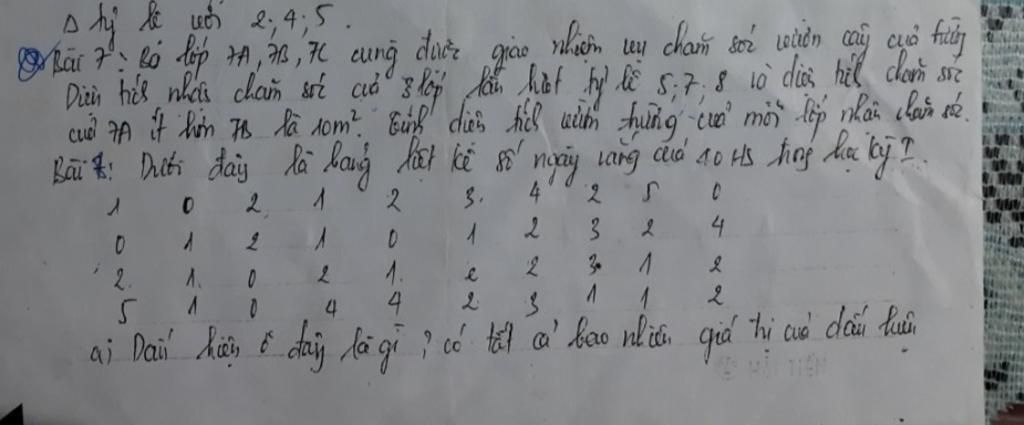 Δ tỷ lệ với 2; 4; 5.
Bài 7: Ba lớp 7A, 7B, 7C cung được giao nhiệm vụ chăm sóc vườn cây của trường
Diện tích nhận chăm sóc của 3 lớp lần lượt tỷ lệ 5; 7; 8 và diện tích chăm sóc
của 7A ít hơn 7B là 10m². Tính diện tích vườn trường của mỗi lớp nhận chăm sóc.
Bài : Dưới đây là bảng liệt kê số ngày vắng của 40 HS trong học kỳ I.
1 0 2 1 2 3 4 2 5 0
0 1 2 1 0 1 2 3 2 4
2 1 0 2 1 2 2 3 1 2
5 1 0 4 4 2 3 1 1 2
a) Dấu hiệu ở đây là gì? có tất cả bao nhiêu giá trị của dấu hiệu